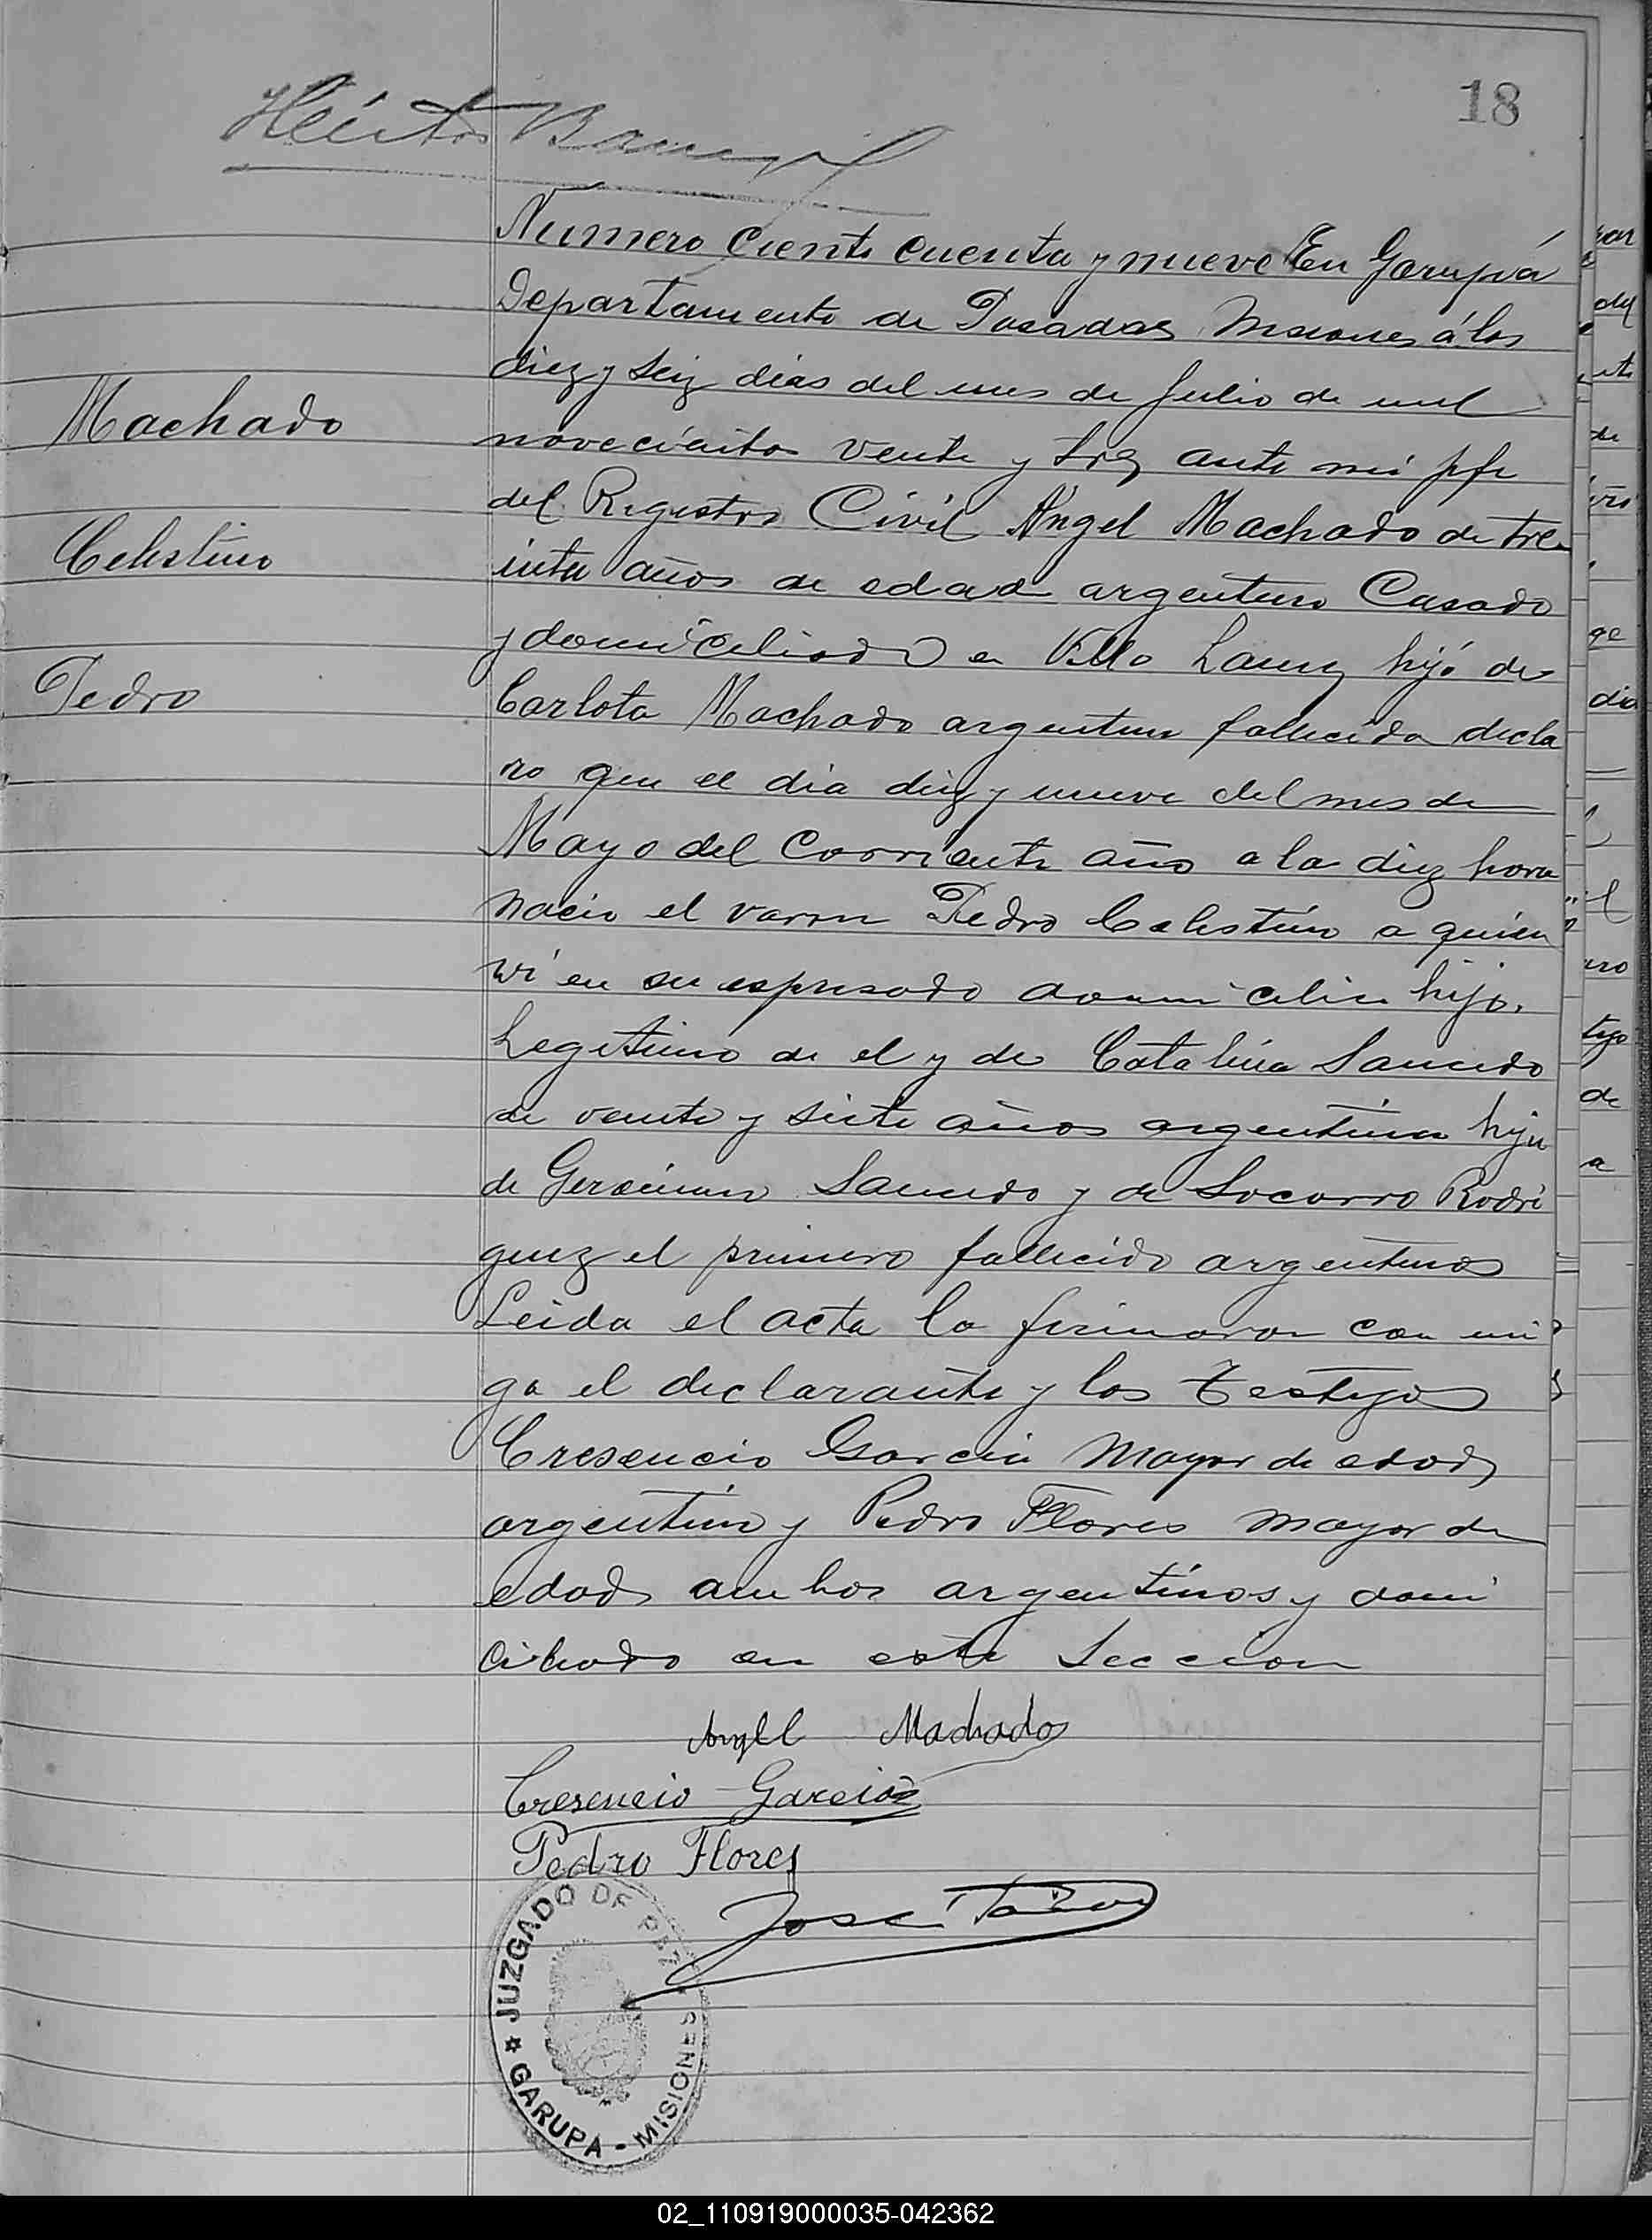 18
Héctor
Numero Ciento cuenta y nueve En Garupá
Departamento de Posadas Misiones á los
diez y seiz dias del mes de Julio de mil
Machado
novecientos veinte y trez ante mi jefe
del Registro Civil Ángel Machado de tre
Celestino
inta años de edad argentino Casado
y domiciliado en Villa Lanuz hijo de
Pedro
Carlota Machado argentina fallecida decla
ro que el dia diez y nueve del mes de
Mayo del corriente año a la diez hora
nacio el varon Pedro Celestino a quien
vi en su espresado domicilio hijo.
Legitimo de el y de Catalina Saucedo
de veinte y siete años argentina hija
de Geronimo Saucedo y de Socorro Rodri
guez el primero fallecido argentinos
Leida el acta la firmaron con mi
go el declarante y los Testigos
Cresencio Garcia Mayor de edad
argentino y Pedro Flores mayor de
edad ambos argentinos y domi
ciliado en este Seccion
Angel Machado
Cresencio Garcia
Pedro Flores
José
JUZGADO DE PAZ MISIONES
GARUPA - MISIONES
02_110919000035-042362